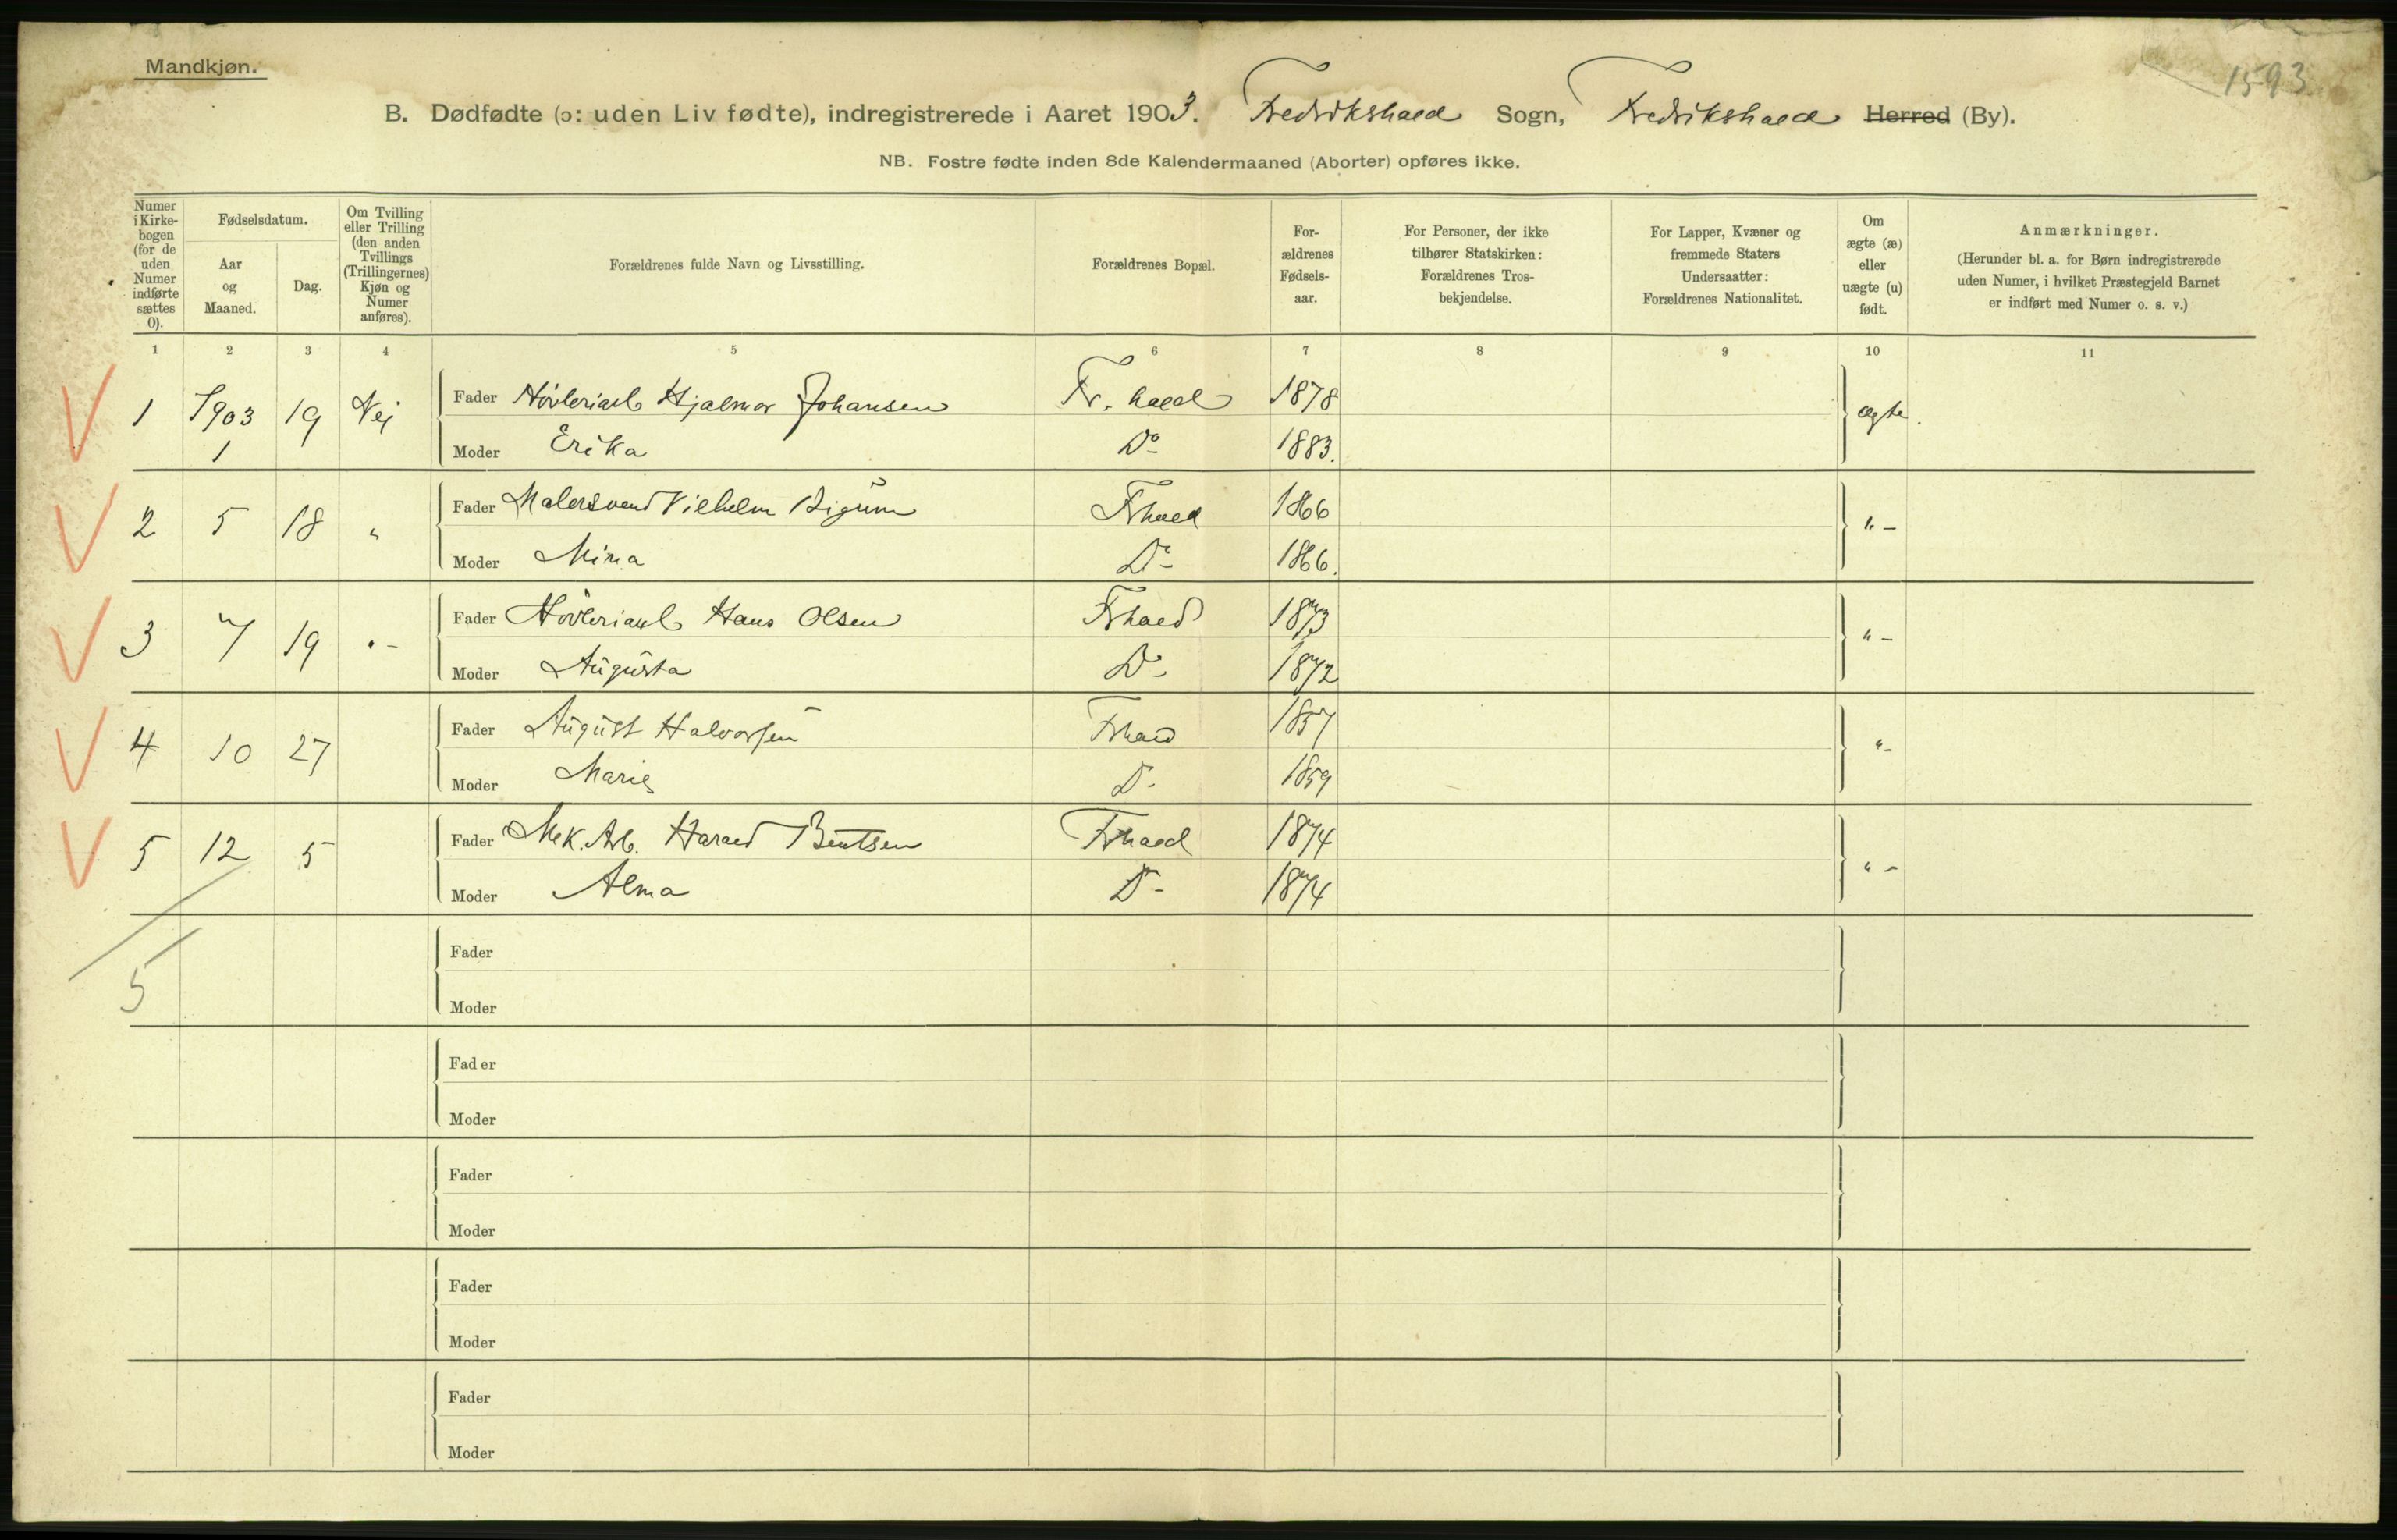 Mandkjøn.
1593
B. Dødfødte (ɔ: uden Liv fødte), indregistrerede i Aaret 1903. Fredrikshald Sogn, Fredrikshald Herred (By).
NB. Fostre fødte inden 8de Kalendermaaned (Aborter) opføres ikke.
Numer i Kirke-bogen (for de uden Numer indførte sættes 0).
Fødselsdatum.
Aar og Maaned.
Dag.
Om Tvilling eller Trilling (den anden Tvillings (Trillingernes) Kjøn og Numer anføres).
Forældrenes fulde Navn og Livsstilling.
Forældrenes Bopæl.
For-ældrenes Fødsels-aar.
For Personer, der ikke tilhører Statskirken: Forældrenes Tros-bekjendelse.
For Lapper, Kvæner og fremmede Staters Undersaatter: Forældrenes Nationalitet.
Om ægte (æ) eller uægte (u) født.
Anmærkninger.
(Herunder bl. a. for Børn indregistrerede uden Numer, i hvilket Præstegjeld Barnet er indført med Numer o. s. v.)
1 2 3 4 5 6 7 8 9 10 11
1 1903 1 19 Nej Fader Høvleriarb Hjalmar Johansen Fr. hald 1878 ægte.
Moder Erika Do 1883.
2 5 18 " Fader Malersvend Vilhelm Bigum Fhald 1866 " -
Moder Mina Do 1866.
3 7 19 " - Fader Høvleriarb Hans Olsen Frhald 1873 " -
Moder Augusta Do 1872
4 10 27 Fader August Halvorsen Frhald 1857 " -
Moder Marie D- 1859
5 12 5 Fader Mek. Arb. Harald Bentsen Frhald 1874 " -
Moder Alma D- 1874
5
Fader
Moder
Fader
Moder
Fader
Moder
Fader
Moder
Fader
Moder